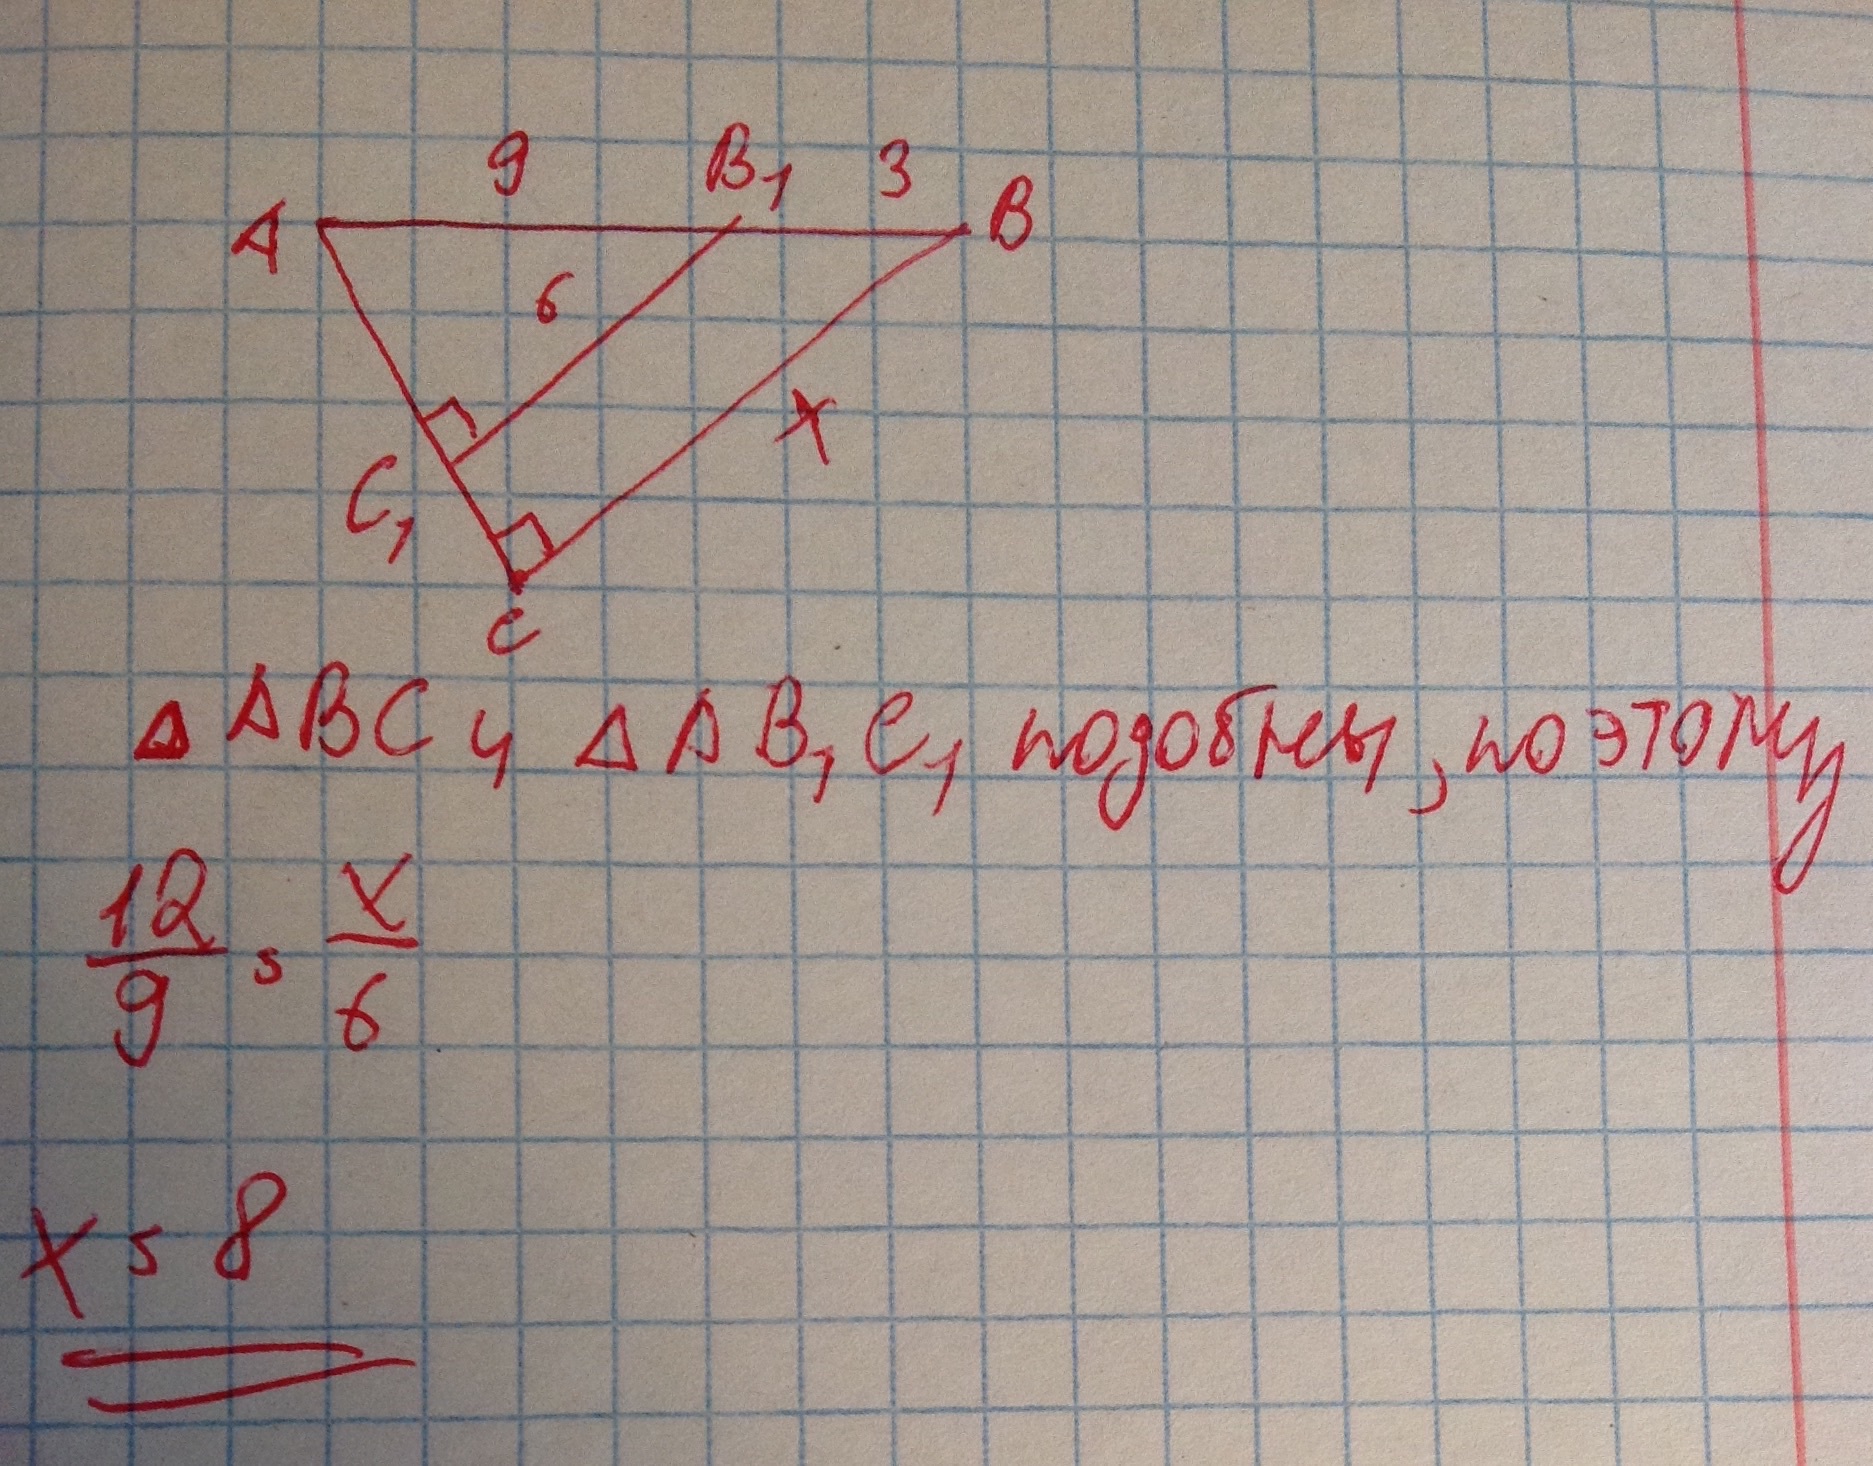 9 B₁ 3
A B
6
x
C₁
C
Δ ABC и Δ AB₁C₁ подобны, поэтому
12/9 = x/6
x = 8